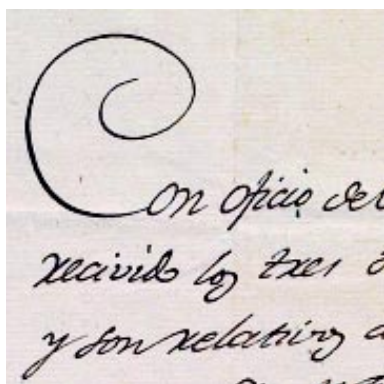 Con oficio del
recivido los tres
y son relativos